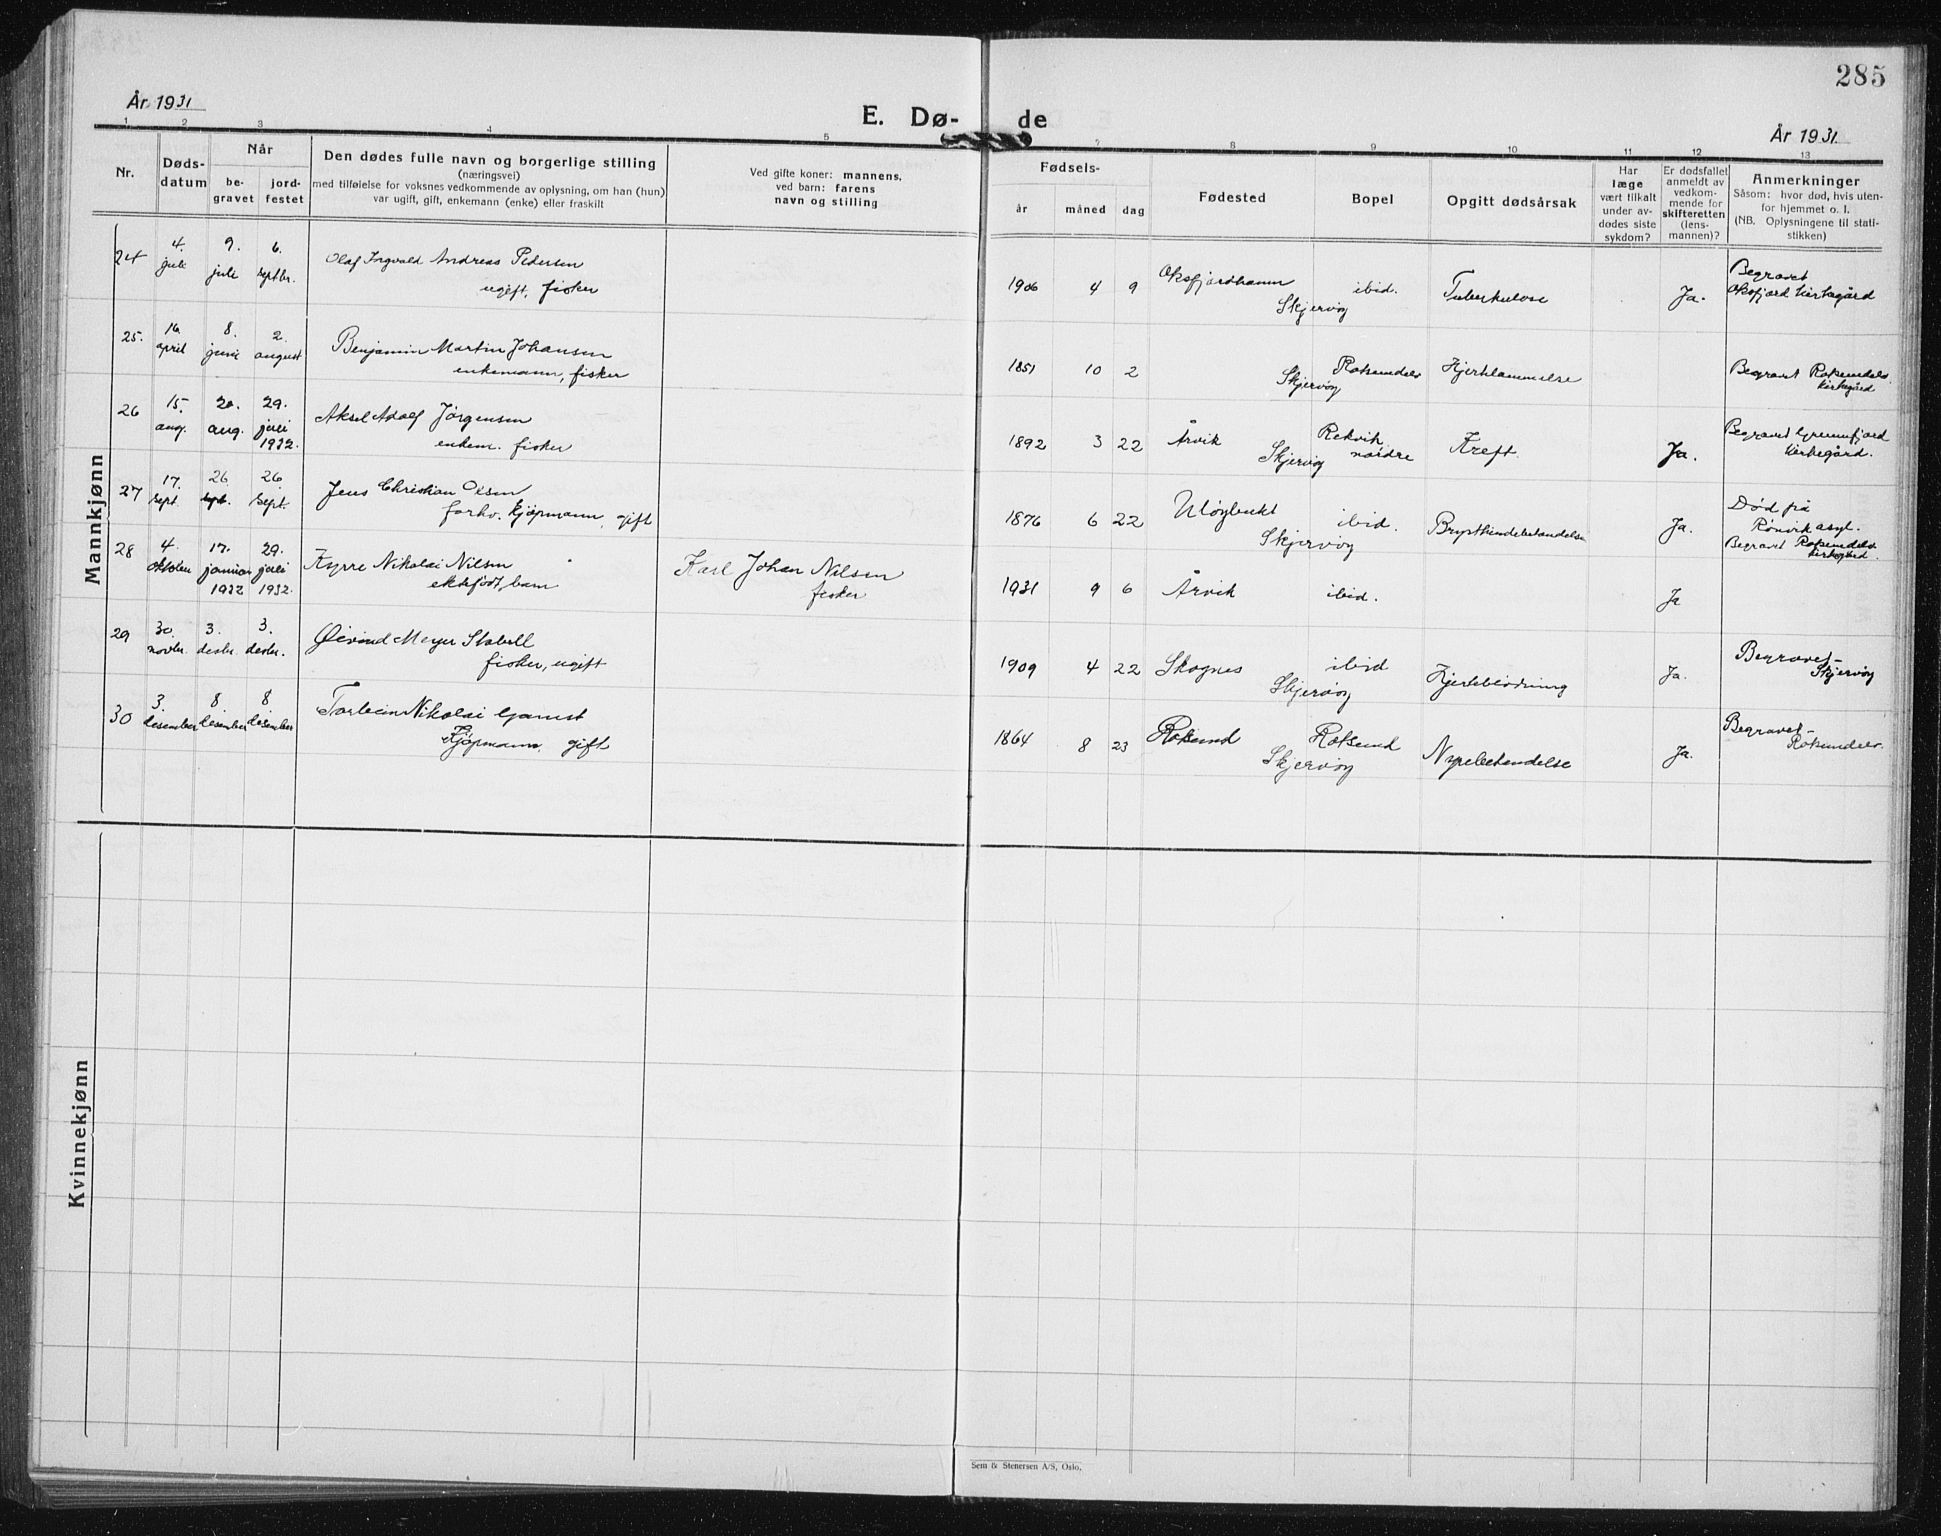 285
År 1931
E. Dø-
de
År 1931.
1 2 3 4 5 7 8 9 10 11 12 13
Nr.
Døds-
datum
Når
be-
gravet
jord-
festet
Den dødes fulle navn og borgerlige stilling
(næringsvei)
med tilføielse for voksnes vedkommende av oplysning, om han (hun)
var ugift, gift, enkemann (enke) eller fraskilt
Ved gifte koner: mannens,
ved barn: farens
navn og stilling
Fødsels-
år måned dag
Fødested
Bopel
Opgitt dødsårsak
Har
læge
vært tilkalt
under av-
dødes siste
sykdom?
Er dødsfallet
anmeldt av
vedkom-
mende for
skifteretten
(lens-
mannen)?
Anmerkninger
Såsom: hvor død, hvis uten-
for hjemmet o. l.
(NB. Oplysningene til stati-
stikken)
Mannkjønn
24 4. juli 9. juli 6. septbr.
Olaf Ingvald Andreas Pedersen
ugift, fisker
1906 4 9 Oksfjordhamn
Skjervøy ibid. Tuberkulose Ja.
Begravet
Oksfjord kirkegård
25. 16. april 8. juni 2. august
Benjamin Martin Johansen
enkemann, fisker
1851 10 2 Skjervøy Rotsundelv Hjertelammelse
Begravet Rotsundelv
kirkegård
26 15. aug. 20. aug. 29. juli 1932.
Aksel Adolf Jørgensen
enkem. fisker
1892 3 22 Årvik
Skjervøy
Rekvik
nordre Kreft. Ja.
Begravet Grunnfjord
kirkegård.
27 17. sept. 26. sept. 26. sept.
Jens Christian Olsen
forhv. kjøpmann, gift
1876 6 22 Uløybukt
Skjervøy ibid. Brysthindebetendelse Ja.
Død på
Rønvik asyl.
Begravet Rotsundelv
kirkegård.
28 4. oktober 17. januar 1932 29. juli 1932.
Kyrre Nikolai Nilsen
ektefødt, barn
Karl Johan Nilsen
fisker
1931 9 6 Årvik ibid. Ja
29 30. novbr. 3. desbr. 3. desbr.
Øivind Meyer Stabell
fisker, ugift
1909 4 22 Skognes
Skjervøy ibid Hjerteblødning Ja.
Begravet
Skjervøy
30 3. desember 8. desember 8. desember
Torbein Nikolai Gamst
Kjøpmann, gift
1864 8 23 Rotsund
Skjervøy Rotsund Nyrebetendelse Ja.
Begravet
Rotsundelv.
Kvinnekjønn
Sem & Stenersen A/S, Oslo.